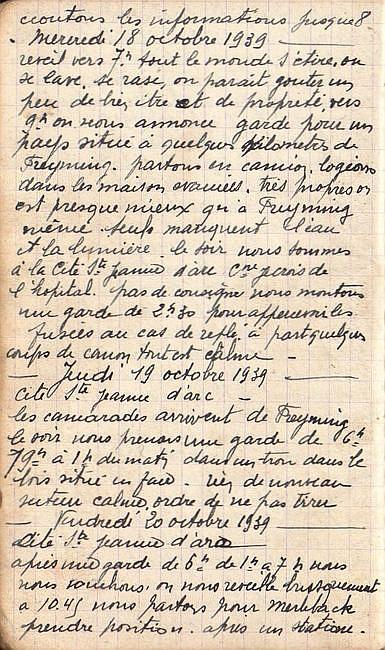 ecoutons les informations jusque 8
Mercredi 18 octobre 1939
reveil vers 7h tout le monde s'étire, on
se lave, se rase, on parait gouter un
peu de bien, être et de propreté, vers
9h on nous annonce garde pour un
pays situé a quelques kilometres de
Freyming. partons en camion, logeons
dans les maison evacuées. très propres on
est presque mieux qu'a Freyming
même. seuls manquent l'eau
et la lumière. le soir nous sommes
à la Cité Ste jeanne d'arc
l'hopital. pas de consigne nous montons
une garde de 2h30 pour appercevoir les
fusées au cas de repli. à part quelques
coups de canon tout est calme -
- Jeudi 19 octobre 1939
Cité Ste jeanne d'arc -
les camarades arrivent de Freyming
le soir nous prenons une garde de 6h
79h à 1h du mat, dans un trou dans le
bois situé en face. rien de nouveau
secteur calme, ordre de ne pas tirer
- Vendredi 20 octobre 1939
Cité Ste jeanne d'arc
après une garde de 6h de 1h a 7h nous
nous couchons. on nous reveille brusquement
a 10.45 nous partons pour Merleback
prendre position. apres un